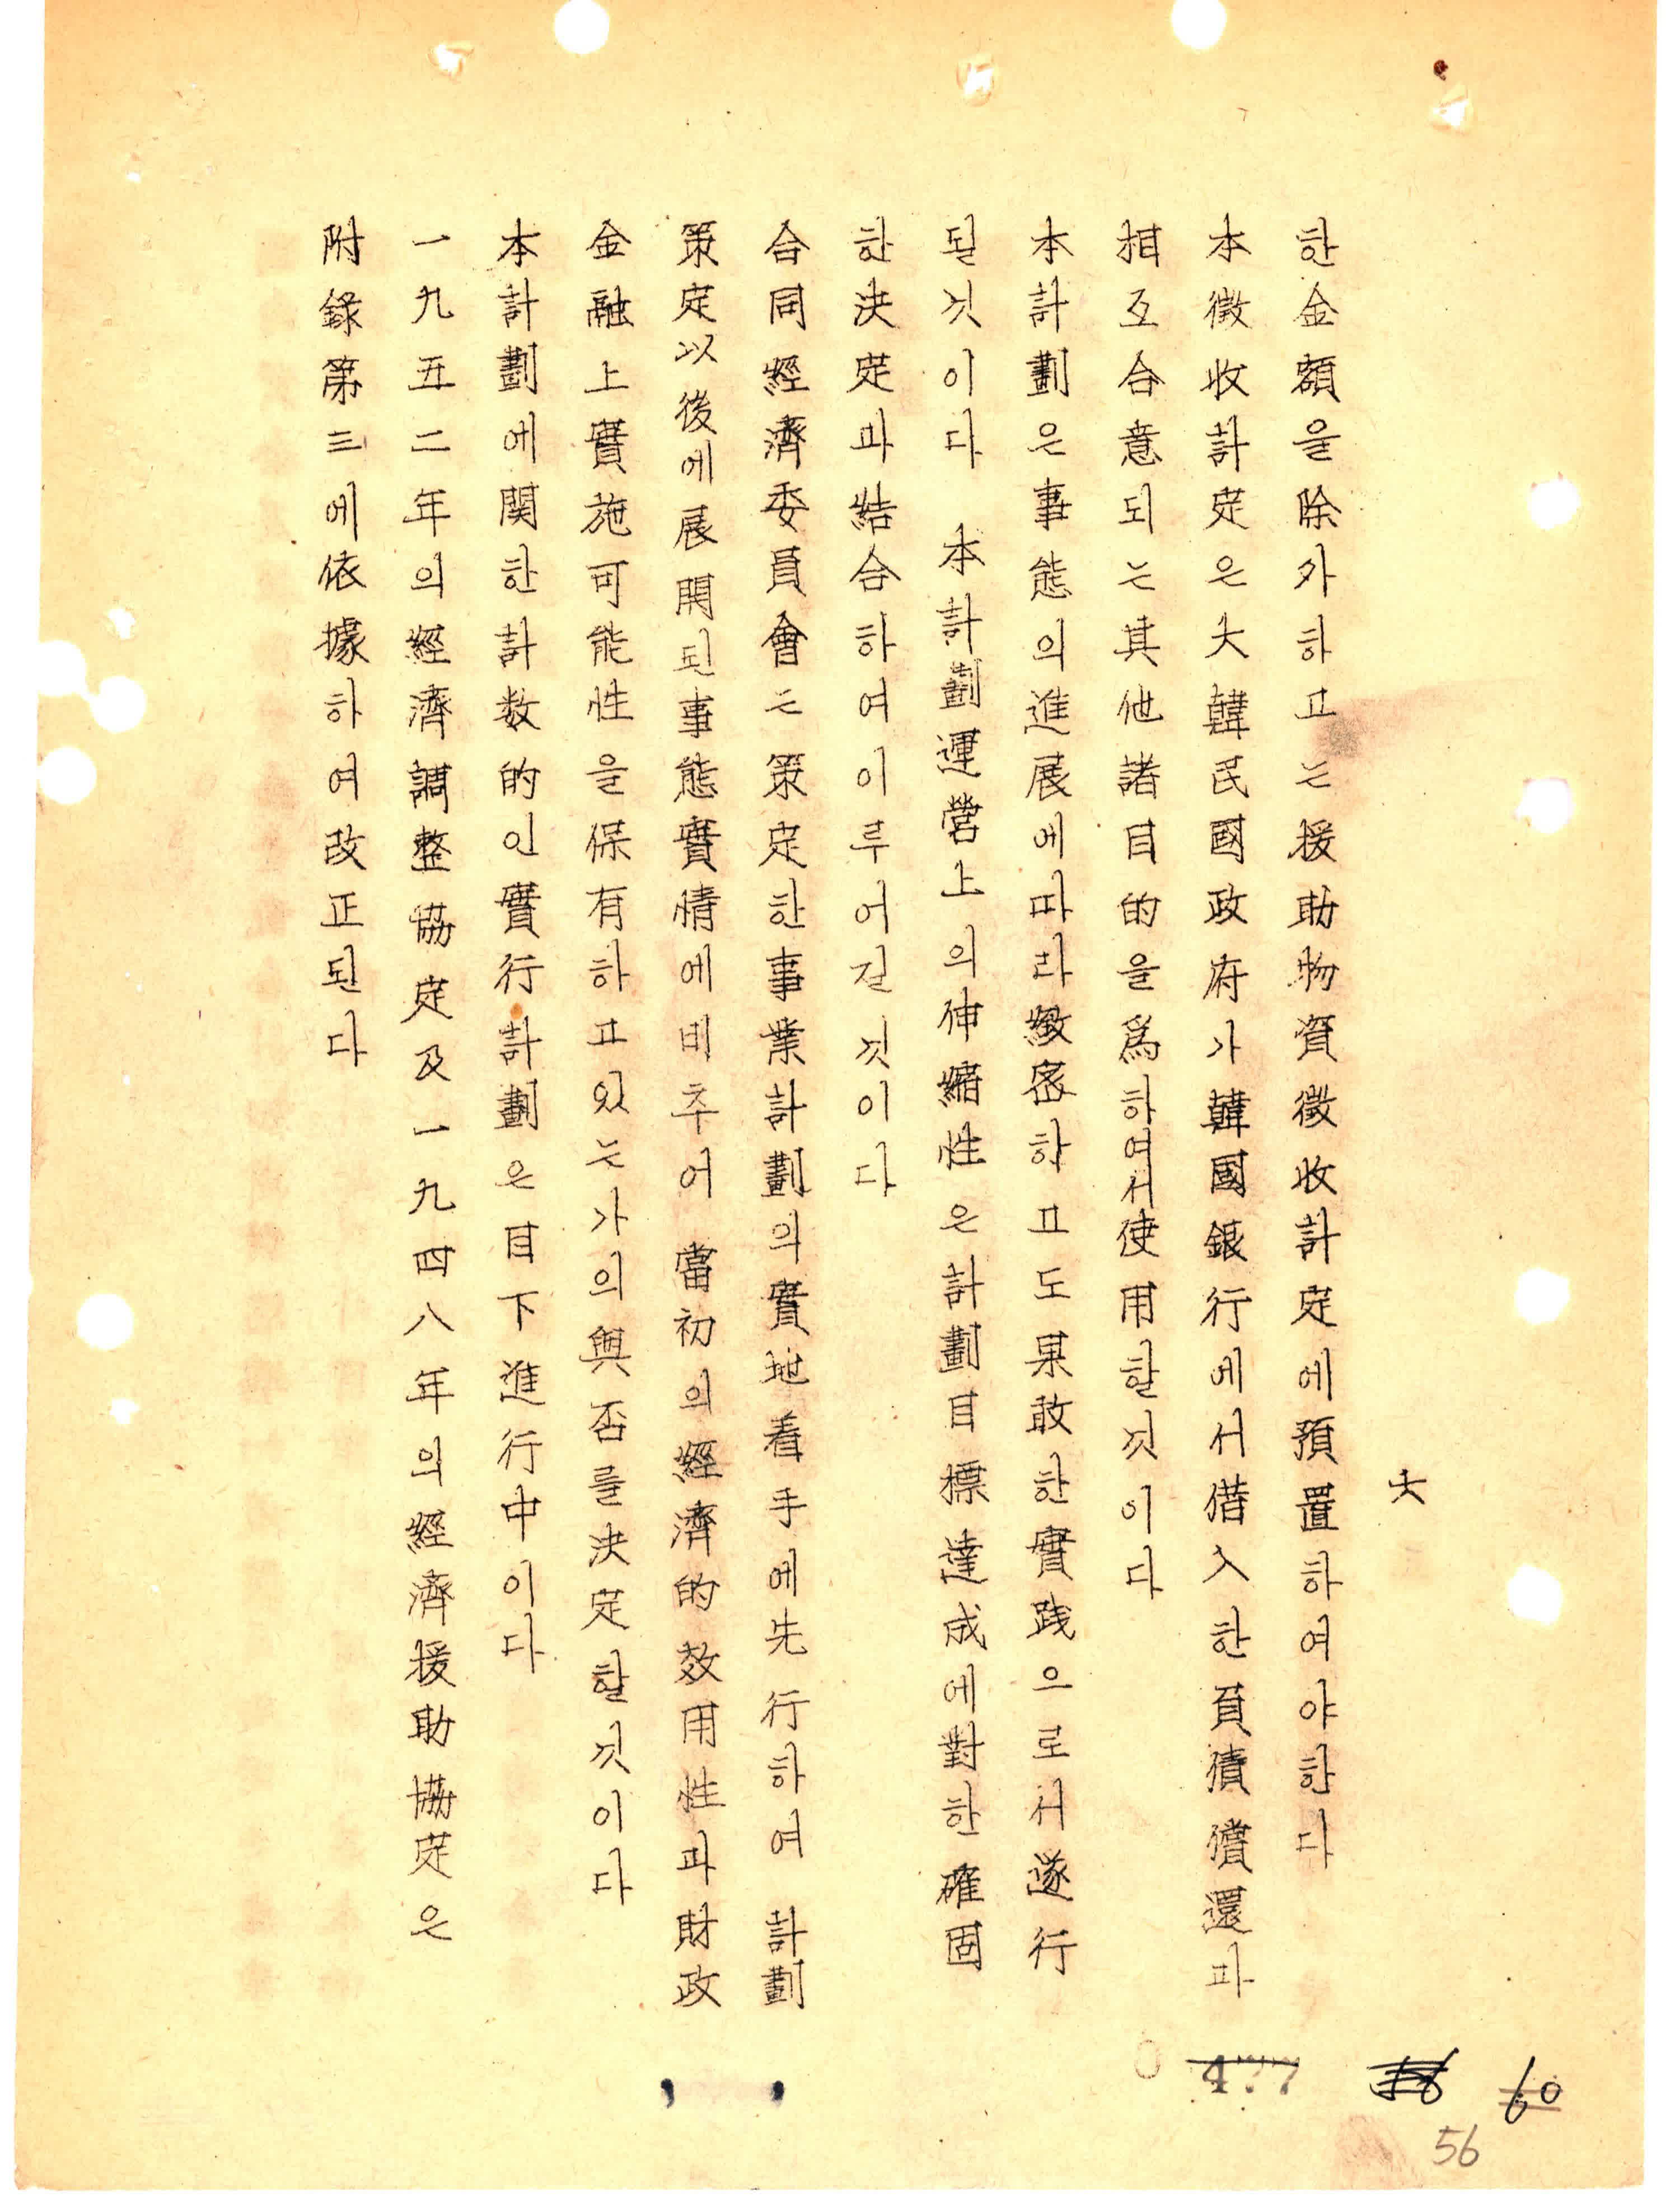 六
한金額을除外하고는援助物資徵收計定에預置하여야한다
本徵收計定은大韓民國政府가韓國銀行에서借入한負債償還과
相互合意되는其他諸目的을爲하여서使用할것이다
本計劃은事態의進展에따라緻密하고도果敢한實践으로서遂行
될것이다 本計劃運營上의伸縮性은計劃目標達成에對한確固
한決定과結合하여이루어질것이다
合同經濟委員會는策定한事業計劃의實地着手에先行하여 計劃
策定以後에展開된事態實情에비추어 當初의經濟的效用性과財政
金融上實施可能性을保有하고있는가의與否를決定할것이다
本計劃에関한計数的인實行計劃은目下進行中이다
一九五二年의經濟調整協定及一九四八年의經濟援助協定은
附錄第三에依據하여改正된다
477
60
56